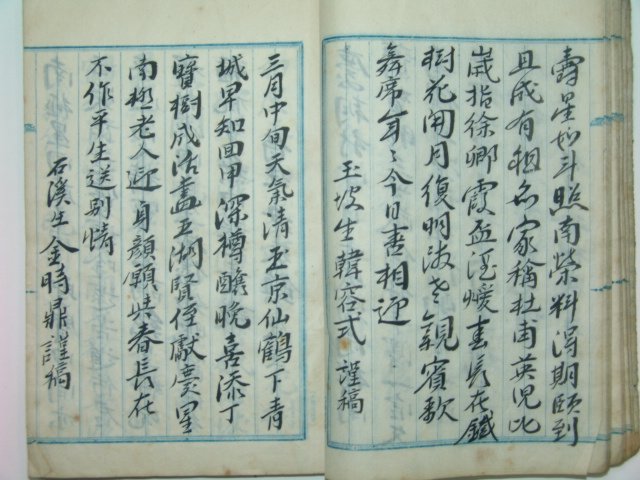 壽星如斗照南榮料得期頤到
且成有祖名家稱杜甫英兒比
歲指徐卿霞盃溫煖春長在鐵
樹花開月復明海老親賓歌
舞席年〻今日喜相迎
玉坡生韓容式謹稿
三月中旬天氣清玉京仙鶴下青
城早知回甲深樽醮晚喜添丁
寶樹成洽盡五湖賢侄獻慶星
南極老人迎身顔願與春長在
不作平生送別情
石溪生金時鼎謹稿